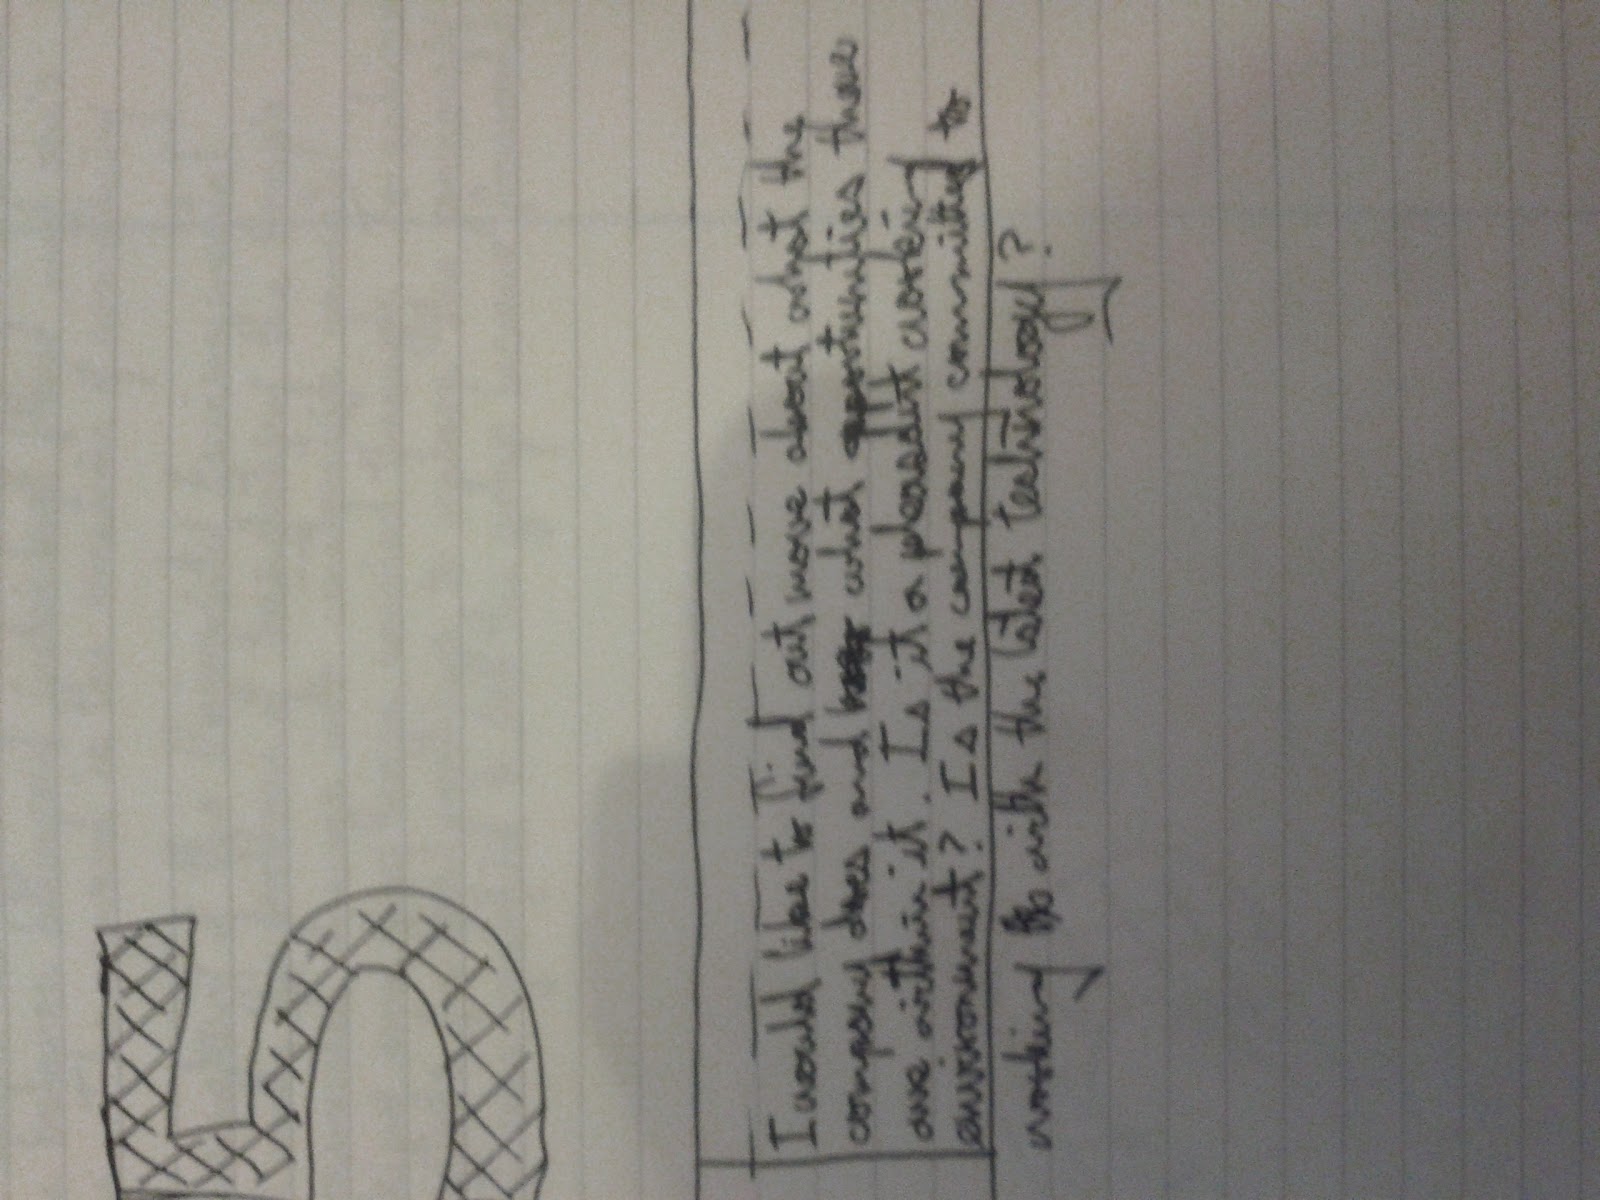 5
I would like to find out more about what the
company does and what opportunities there
are within it. Is it a pleasant working
environment? Is the company committed to
working with the latest technology?